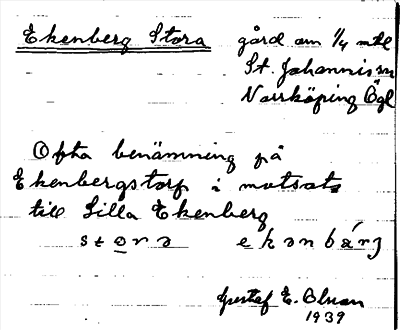 Ekenberg Stora gård om 1/4 mtl
St. Johannis sn
Norrköping Ögl
Ofta benämning på
Ekenbergstorp i motsats
till Lilla Ekenberg
Gustaf E. Olson
1939